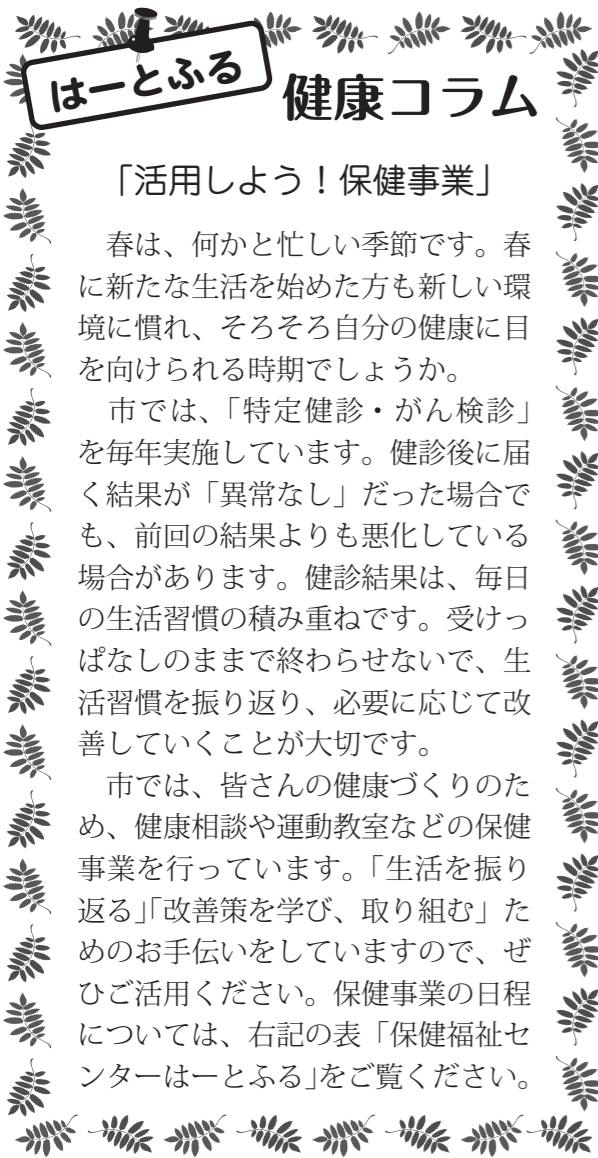 はーとふる
健康コラム
「活用しよう！保健事業」
　春は、何かと忙しい季節です。春
に新たな生活を始めた方も新しい環
境に慣れ、そろそろ自分の健康に目
を向けられる時期でしょうか。
　市では、「特定健診・がん検診」
を毎年実施しています。健診後に届
く結果が「異常なし」だった場合で
も、前回の結果よりも悪化している
場合があります。健診結果は、毎日
の生活習慣の積み重ねです。受けっ
ぱなしのままで終わらせないで、生
活習慣を振り返り、必要に応じて改
善していくことが大切です。
　市では、皆さんの健康づくりのた
め、健康相談や運動教室などの保健
事業を行っています。「生活を振り
返る」「改善策を学び、取り組む」た
めのお手伝いをしていますので、ぜ
ひご活用ください。保健事業の日程
については、右記の表「保健福祉セ
ンターはーとふる」をご覧ください。